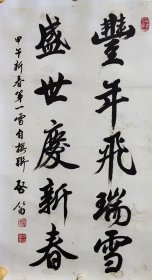 豐年飛瑞雪
盛世慶新春
甲午新春第一雪自撰聯 啓笛